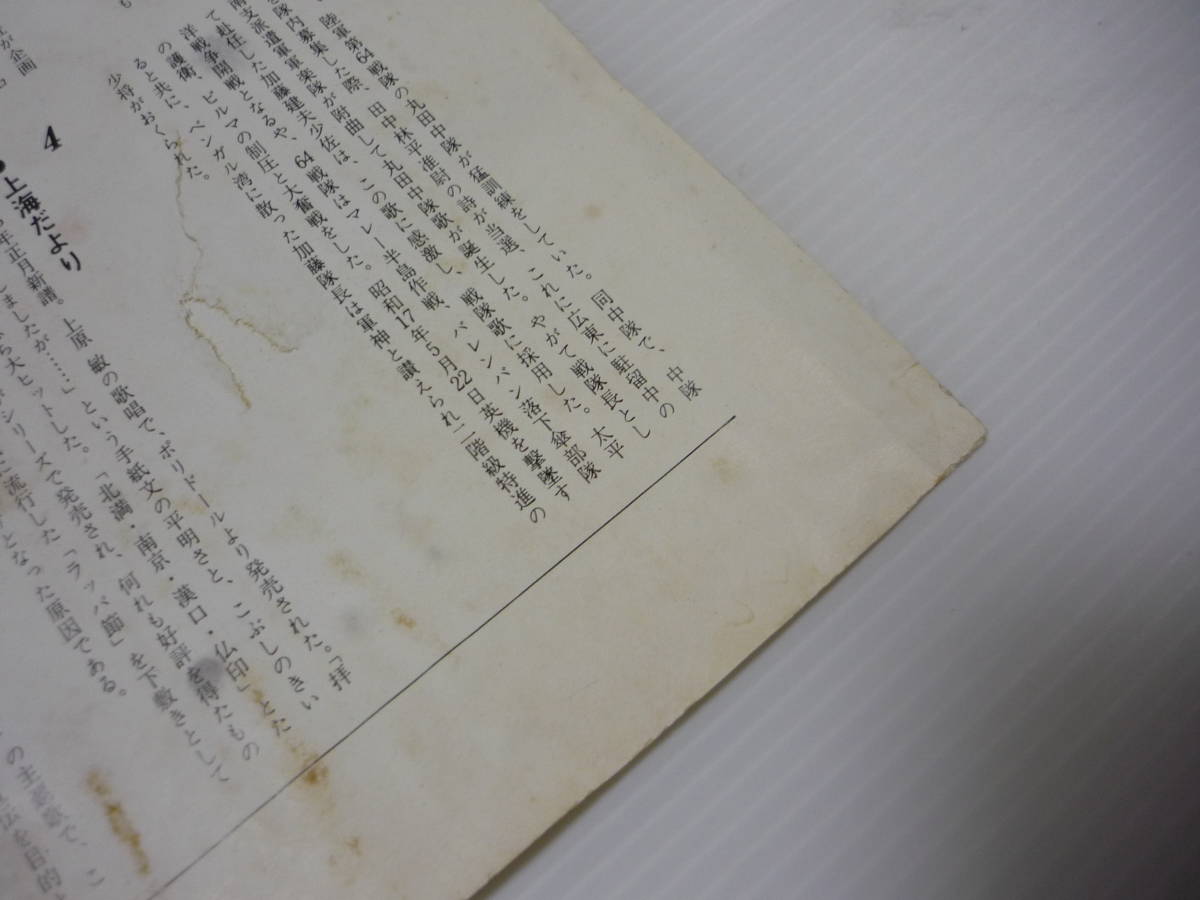 陸軍第64戦隊の丸田中隊が猛訓練をしていた。同中隊で、中隊
隊内募集した際、田中林平准尉の詩が当選、これに広東に駐留中の
南支派遣軍軍楽隊が附曲して丸田中隊歌が誕生した。やがて戦隊長とし
て赴任した加藤建夫少佐は、この歌に感激し、戦隊歌に採用した。太平
洋戦争開戦となるや、64戦隊はマレー半島作戦、パレンバン落下傘部隊
の護衛、ビルマの制圧と大奮戦をした。昭和17年5月22日英機を撃墜す
ると共に、ベンガル湾に散った加藤隊長は軍神と讃えられ二階級特進の
少将がおくられた。
が企画
4
上海だより
年正月新譜。上原 敏の歌唱で、ポリドールより発売された。「拝
しましたが……」という手紙文の平明さと、こぶしのきい
ら大ヒットした。「北満・南京・漢口・仏印」とた
シリーズで発売され、何れも好評を得たもの
に流行した「ラッパ節」を下敷きとして
となった原因である。
の主題歌で、こ
法を目的